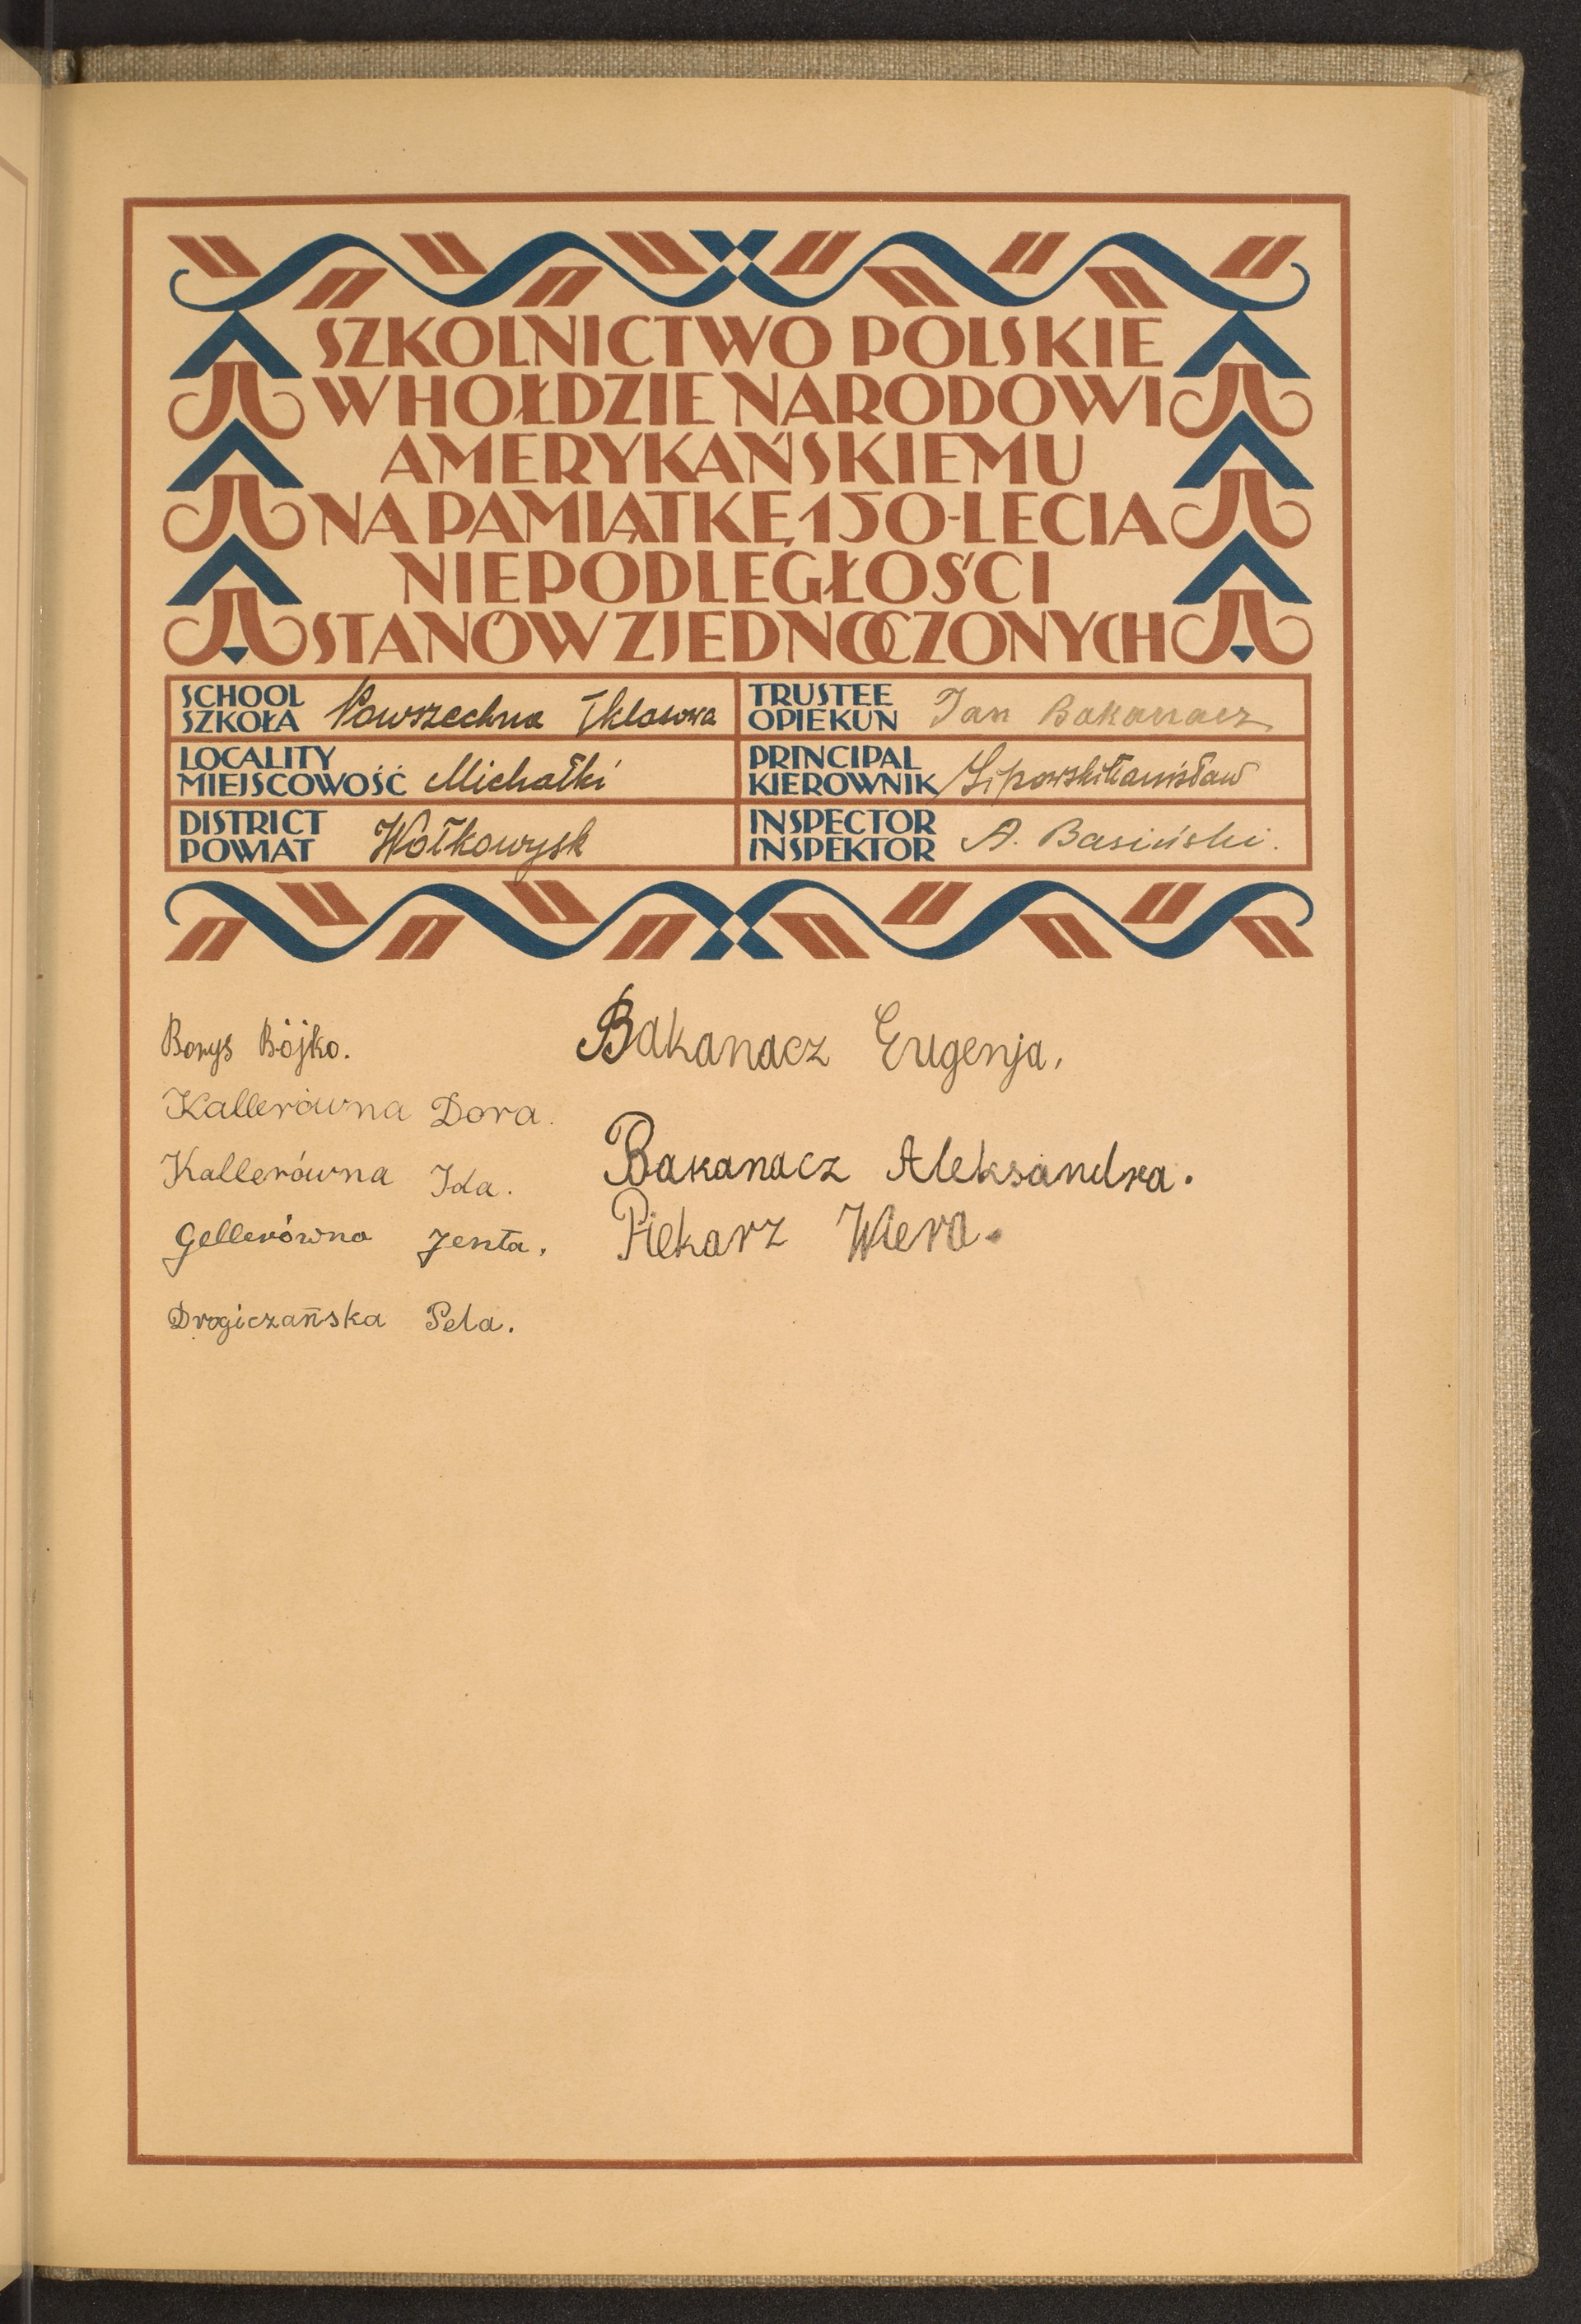 SZKOLNICTWO POLSKIE
W HOŁDZIE NARODOWI
AMERYKAŃSKIEMU
NA PAMIĄTKĘ 150-LECIA
NIEPODLEGŁOŚCI
STANÓW ZJEDNOCZONYCH
SCHOOL
SZKOŁA Powszechna klasowa
TRUSTEE
OPIEKUN Jan Bakanacz
LOCALITY
MIEJSCOWOŚĆ Michałki
PRINCIPAL
KIEROWNIK Lipowski Stanisław
DISTRICT
POWIAT Wołkowysk
INSPECTOR
INSPEKTOR A. Basiński.
Borys Bójko.
Kallerówna Dora.
Kallerówna Ida.
Gellerówna Jenta.
Drogiczańska Pela.
Bakanacz Eugenja.
Bakanacz Aleksandra.
Piekarz Wiera.